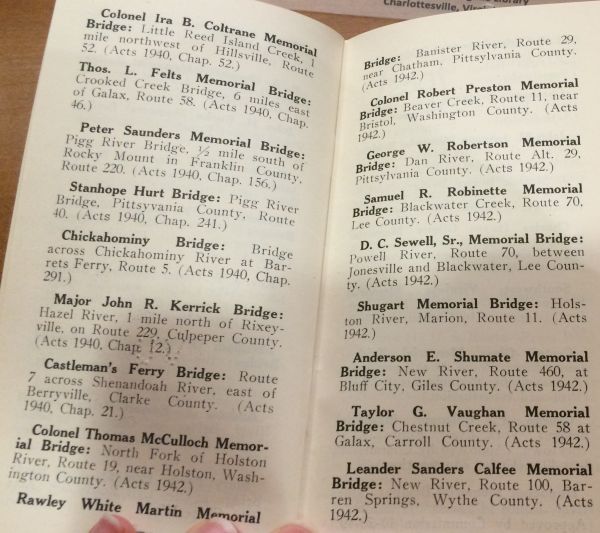 Library
Charlottesville,
Colonel Ira B. Coltrane Memorial
Bridge: Little Reed Island Creek, 1
mile northwest of Hillsville. Route
52. (Acts 1940, Chap. 52.)
Thos. L. Felts Memorial Bridge:
Crooked Creek Bridge, 6 miles east
of Galax, Route 58. (Acts 1940, Chap.
46.)
Peter Saunders Memorial Bridge:
Pigg River Bridge, ½ mile south of
Rocky Mount in Franklin County.
Route 220. (Acts 1940, Chap. 156.)
Stanhope Hurt Bridge: Pigg River
Bridge, Pittsyvania County. Route
40. (Acts 1940, Chap. 241.)
Chickahominy Bridge: Bridge
across Chickahominy River at Bar-
rets Ferry, Route 5. (Acts 1940, Chap.
291.)
Major John R. Kerrick Bridge:
Hazel River, 1 mile north of Rixey-
ville, on Route 229, Culpeper County.
(Acts 1940, Chap. 12.)
Castleman's Ferry Bridge: Route
7 across Shenandoah River, east of
Berryville, Clarke County. (Acts
1940, Chap. 21.)
Colonel Thomas McCulloch Memor-
ial Bridge: North Fork of Holston
River, Route 19, near Holston, Wash-
ington County. (Acts 1942.)
Rawley White Martin Memorial
Bridge: Banister River, Route 29,
near Chatham, Pittsylvania County.
(Acts 1942.)
Colonel Robert Preston Memorial
Bridge: Beaver Creek, Route 11, near
Bristol, Washington County. (Acts
1942.)
George W. Robertson Memorial
Bridge: Dan River, Route Alt. 29,
Pittsylvania County. (Acts 1942.)
Samuel R. Robinette Memorial
Bridge: Blackwater Creek, Route 70,
Lee County. (Acts 1942.)
D. C. Sewell, Sr., Memorial Bridge:
Powell River, Route 70, between
Jonesville and Blackwater, Lee Coun-
ty. (Acts 1942.)
Shugart Memorial Bridge: Hols-
ton River, Marion, Route 11. (Acts
1942.)
Anderson E. Shumate Memorial
Bridge: New River, Route 460, at
Bluff City, Giles County. (Acts 1942.)
Taylor G. Vaughan Memorial
Bridge: Chestnut Creek, Route 58 at
Galax, Carroll County. (Acts 1942.)
Leander Sanders Calfee Memorial
Bridge: New River, Route 100, Bar-
ren Springs, Wythe County. (Acts
1942.)